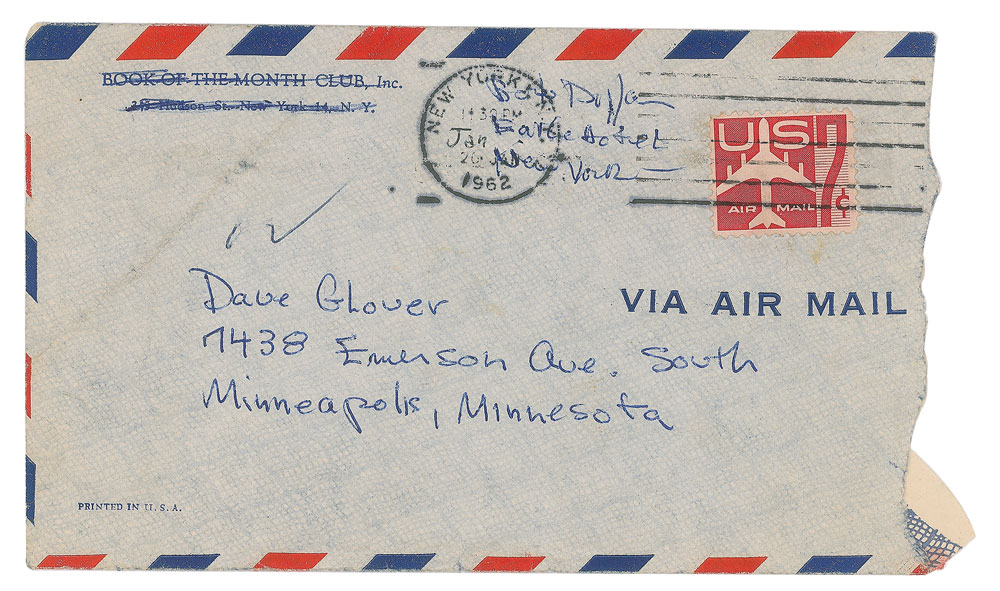 BOOK OF THE MONTH CLUB, Inc.
Hudson St. New York 14, N. Y.
NEW YORK
PM
Jan
20
1962
Bob Dylan
Earle Hotel
New York
US
7¢
AIR MAIL
VIA AIR MAIL
Dave Glover
7438 Emerson Ave. South
Minneapolis, Minnesota
PRINTED IN U. S. A.